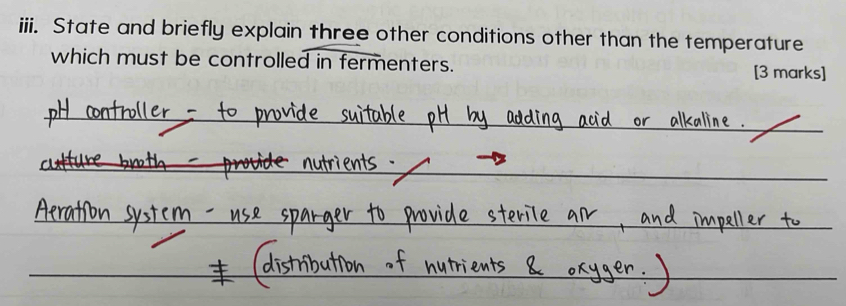 iii. State and briefly explain three other conditions other than the temperature
which must be controlled in fermenters.
[3 marks]
pH controller - to provide suitable pH by adding acid or alkaline.
culture broth - provide nutrients.
Aeration system - use sparger to provide sterile air, and impeller to
(distribution of nutrients & oxygen.)